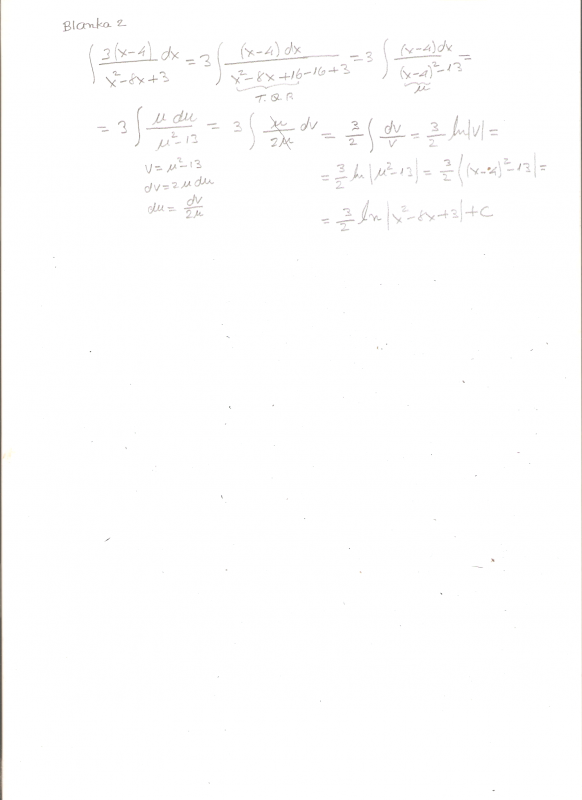 Blanka 2
∫ 3(x-4) dx / x²-8x+3 = 3 ∫ (x-4) dx / x²-8x+16-16+3 = 3 ∫ (x-4)dx / (x-4)²-13 =
T.Q.P. u
= 3 ∫ u du / u²-13 = 3 ∫ u/2u dv = 3/2 ∫ dv/v = 3/2 ln|v| =
v=u²-13
dv=2u du
du= dv/2u
= 3/2 ln|u²-13| = 3/2 ((x-4)²-13| =
= 3/2 ln|x²-8x+3|+C